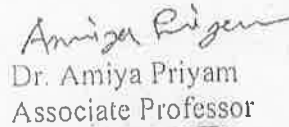 Amiya Priyam
Dr. Amiya Priyam
Associate Professor